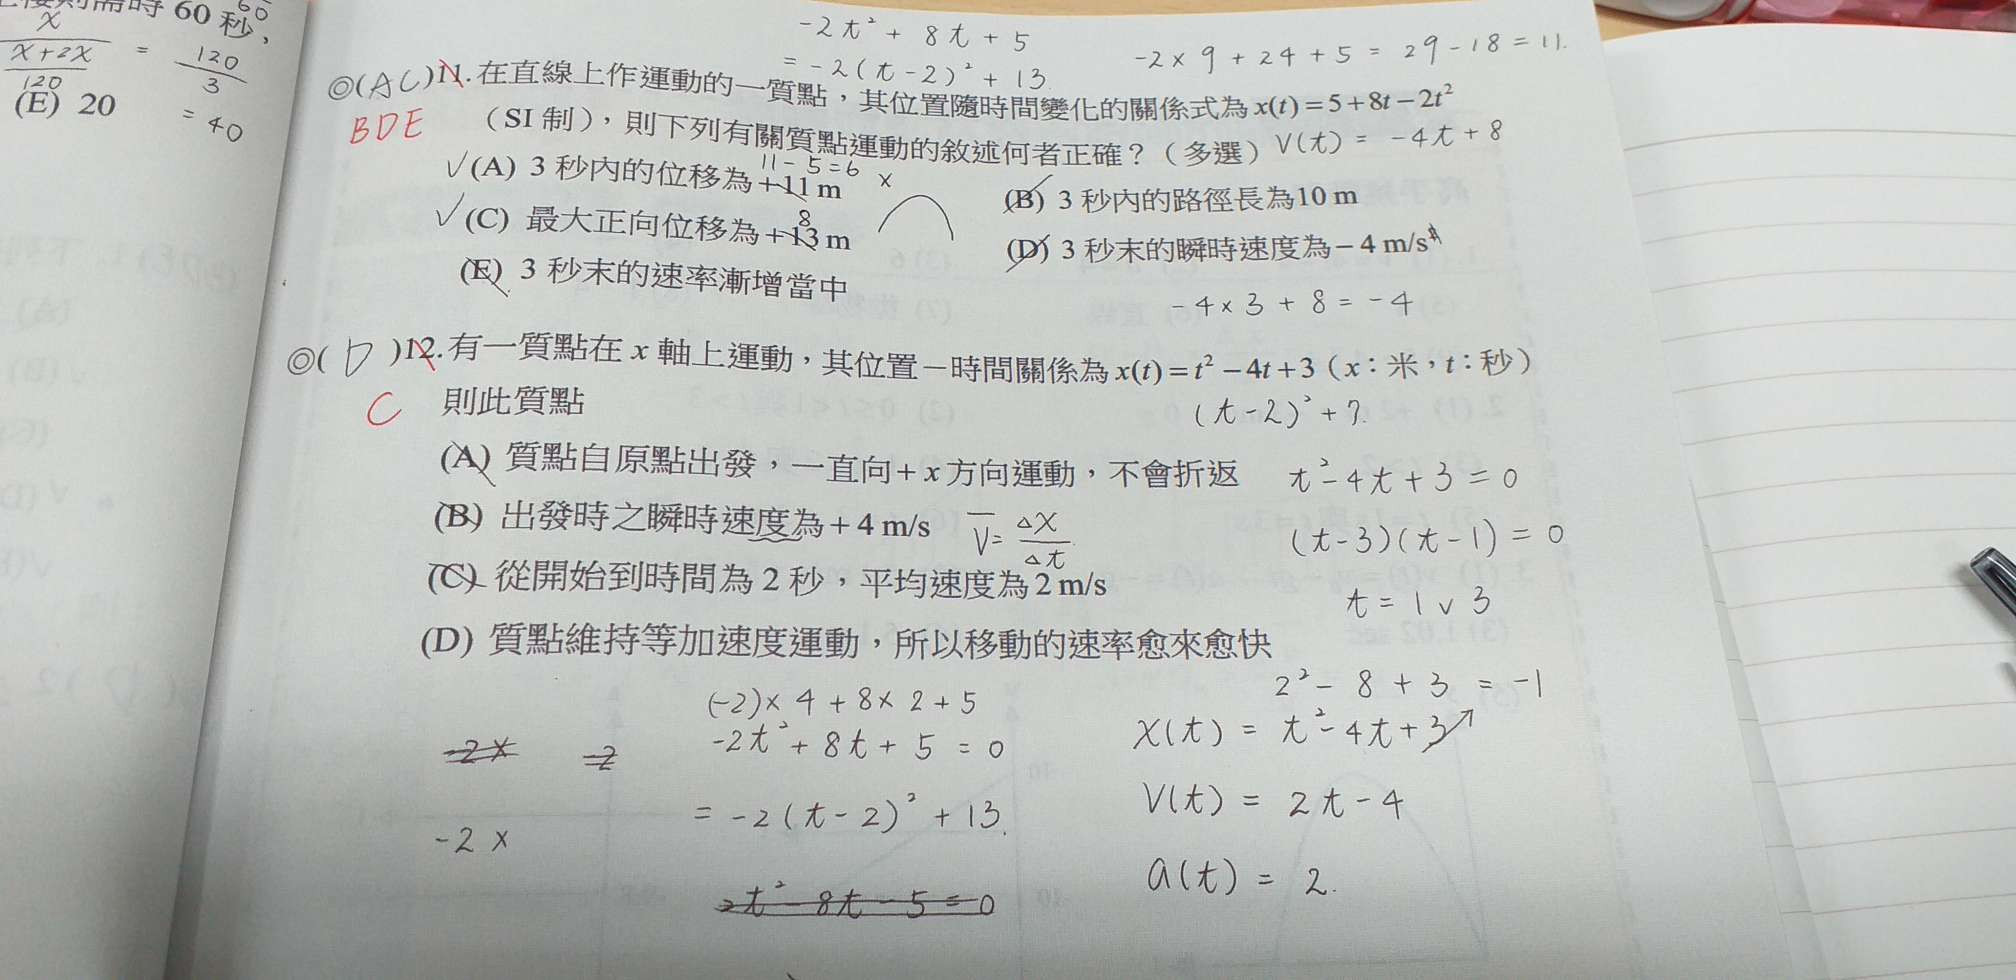 60秒,
60
x
x+2x
120
=
120
3
(E) 20
= 40
-2t² + 8t + 5
= -2(t-2)² + 13.
-2×9+24+5 = 29-18 = 11.
◎(AC)11.在直線上作運動的一質點,其位置隨時間變化的關係式為x(t)=5+8t-2t²
BDE
(SI制),則下列有關質點運動的敘述何者正確?(多選) V(t) = -4t+8
11-5=6
✓(A) 3秒內的位移為+11 m x
(B) 3秒內的路徑長為10 m
8
✓(C) 最大正向位移為+13 m
(D) 3秒末的瞬時速度為-4 m/s
(E) 3秒末的速率漸增當中
-4×3+8=-4
◎(D)12.有一質點在x軸上運動,其位置-時間關係為x(t)=t²-4t+3(x:米,t:秒)
C
則此質點
(t-2)²+?.
(A) 質點自原點出發,一直向+x方向運動,不會折返
t²-4t+3=0
(B) 出發時之瞬時速度為+4 m/s
V̄= Δx
Δt
(t-3)(t-1)=0
(C) 從開始到時間為2秒,平均速度為2 m/s
t=1∨3
(D) 質點維持等加速度運動,所以移動的速率愈來愈快
2²-8+3=-1
(-2)×4+8×2+5
-2t²+8t+5=0
x(t) = t²-4t+3
-2x
=2
= -2(t-2)²+13.
V(t) = 2t-4
-2x
a(t) = 2.
2t²-8t-5=0